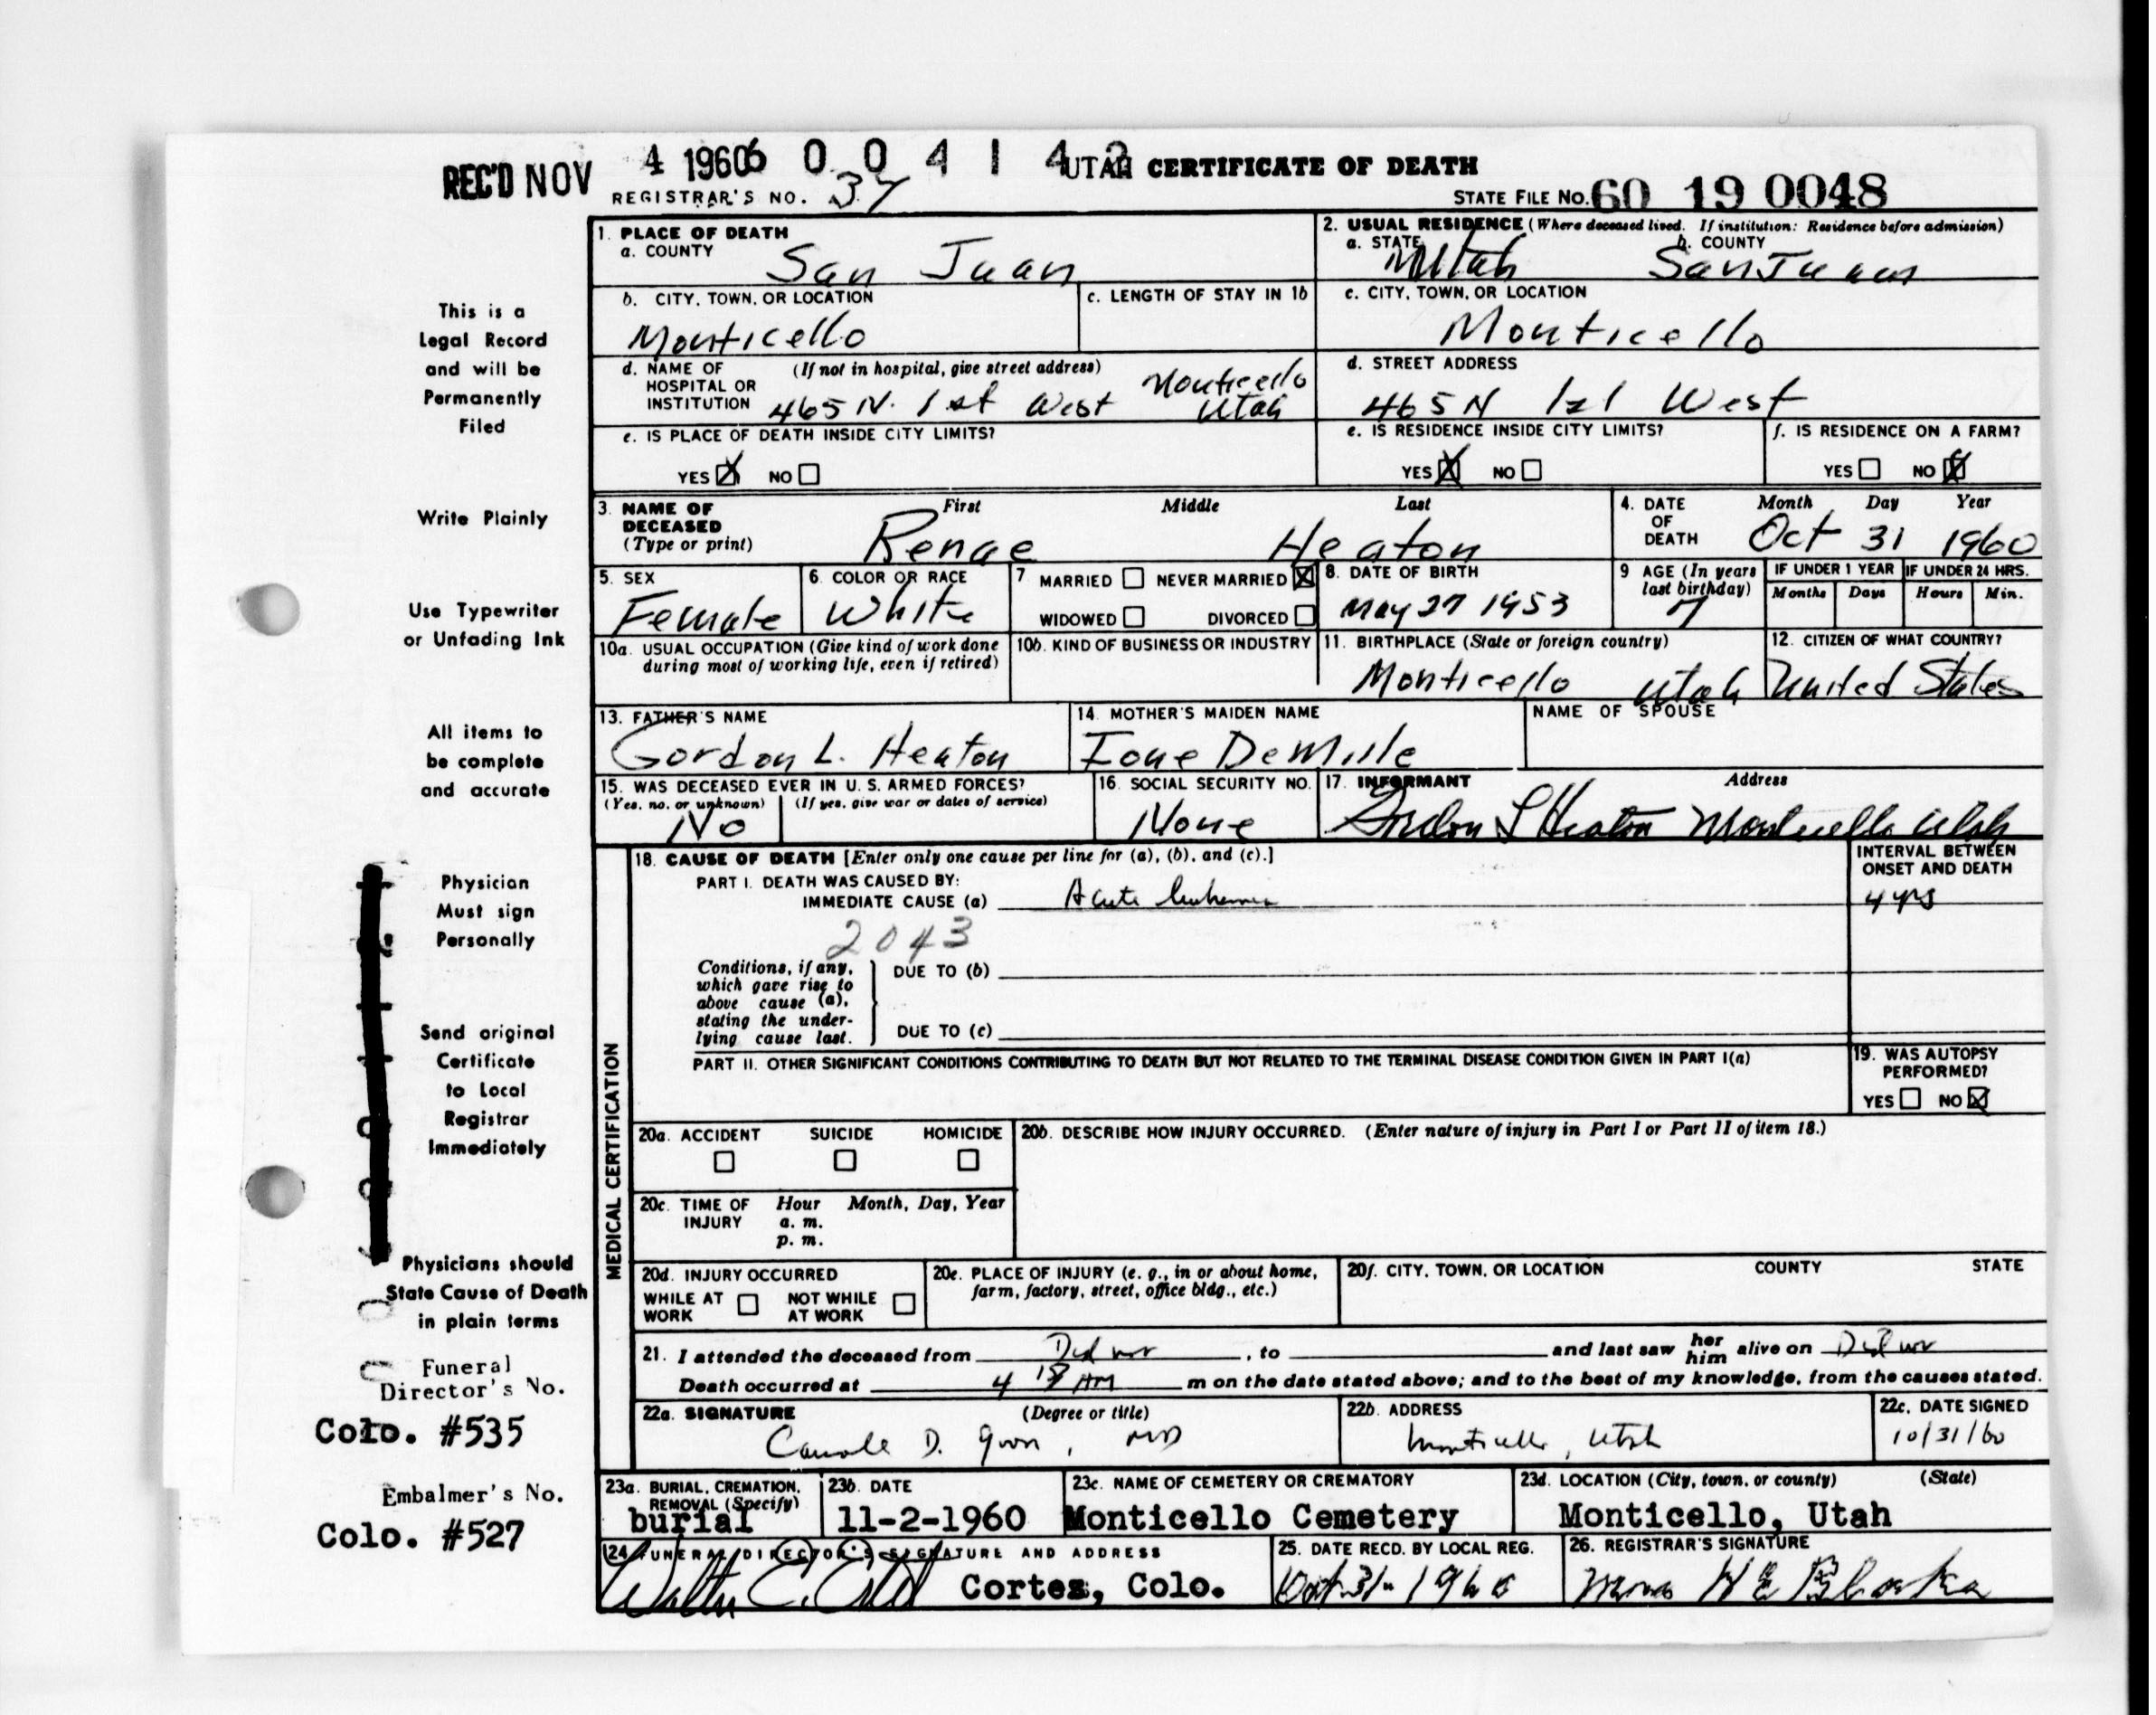 REC'D NOV 4 1960
6 0 0 4 1 4
UTAH CERTIFICATE OF DEATH
REGISTRAR'S NO. 37
STATE FILE NO. 60 19 0048
1. PLACE OF DEATH
a. COUNTY San Juan
2. USUAL RESIDENCE (Where deceased lived. If institution: Residence before admission)
a. STATE Utah b. COUNTY San Juan
b. CITY, TOWN, OR LOCATION Monticello
c. LENGTH OF STAY IN 1b
c. CITY, TOWN, OR LOCATION Monticello
d. NAME OF HOSPITAL OR INSTITUTION (If not in hospital, give street address) 465 N. 1st West Monticello Utah
d. STREET ADDRESS 465 N 1st West
e. IS PLACE OF DEATH INSIDE CITY LIMITS?
YES X NO
e. IS RESIDENCE INSIDE CITY LIMITS?
YES X NO
f. IS RESIDENCE ON A FARM?
YES NO X
3. NAME OF DECEASED (Type or print) First Middle Last
Renae Heaton
4. DATE OF DEATH Month Day Year
Oct 31 1960
5. SEX Female
6. COLOR OR RACE White
7 MARRIED NEVER MARRIED X
WIDOWED DIVORCED
8. DATE OF BIRTH May 27 1953
9 AGE (In years last birthday) 7
IF UNDER 1 YEAR Months Days
IF UNDER 24 HRS. Hours Min.
10a. USUAL OCCUPATION (Give kind of work done during most of working life, even if retired)
10b. KIND OF BUSINESS OR INDUSTRY
11. BIRTHPLACE (State or foreign country) Monticello Utah
12. CITIZEN OF WHAT COUNTRY? United States
13. FATHER'S NAME Gordon L. Heaton
14. MOTHER'S MAIDEN NAME Ione DeMille
NAME OF SPOUSE
15. WAS DECEASED EVER IN U. S. ARMED FORCES?
(Yes, no, or unknown) (If yes, give war or dates of service)
No
16. SOCIAL SECURITY NO. None
17. INFORMANT Address
Gordon L Heaton Monticello Utah
MEDICAL CERTIFICATION
18. CAUSE OF DEATH [Enter only one cause per line for (a), (b), and (c).]
PART I. DEATH WAS CAUSED BY:
IMMEDIATE CAUSE (a) Acute leukemia
INTERVAL BETWEEN ONSET AND DEATH
4 yrs
2043
Conditions, if any, which gave rise to above cause (a), stating the underlying cause last.
DUE TO (b)
DUE TO (c)
PART II. OTHER SIGNIFICANT CONDITIONS CONTRIBUTING TO DEATH BUT NOT RELATED TO THE TERMINAL DISEASE CONDITION GIVEN IN PART I(a)
19. WAS AUTOPSY PERFORMED?
YES NO X
20a. ACCIDENT SUICIDE HOMICIDE
20b. DESCRIBE HOW INJURY OCCURRED. (Enter nature of injury in Part I or Part II of item 18.)
20c. TIME OF INJURY Hour Month, Day, Year
a. m.
p. m.
20d. INJURY OCCURRED
WHILE AT WORK NOT WHILE AT WORK
20e. PLACE OF INJURY (e. g., in or about home, farm, factory, street, office bldg., etc.)
20f. CITY, TOWN, OR LOCATION COUNTY STATE
21. I attended the deceased from Did not, to and last saw her him alive on Did not
Death occurred at 4 18 AM m on the date stated above; and to the best of my knowledge, from the causes stated.
22a. SIGNATURE (Degree or title)
D. Goon, MD
22b. ADDRESS Monticello, Utah
22c. DATE SIGNED 10/31/60
23a. BURIAL, CREMATION, REMOVAL (Specify) burial
23b. DATE 11-2-1960
23c. NAME OF CEMETERY OR CREMATORY Monticello Cemetery
23d. LOCATION (City, town, or county) (State) Monticello, Utah
24 FUNERAL DIRECTOR'S SIGNATURE AND ADDRESS
Walter E. Cortez, Colo.
25. DATE RECD. BY LOCAL REG. Oct 31-1960
26. REGISTRAR'S SIGNATURE
This is a
Legal Record
and will be
Permanently
Filed
Write Plainly
Use Typewriter
or Unfading Ink
All items to
be complete
and accurate
Physician
Must sign
Personally
Send original
Certificate
to Local
Registrar
Immediately
Physicians should
State Cause of Death
in plain terms
Funeral
Director's No.
Colo. #535
Embalmer's No.
Colo. #527